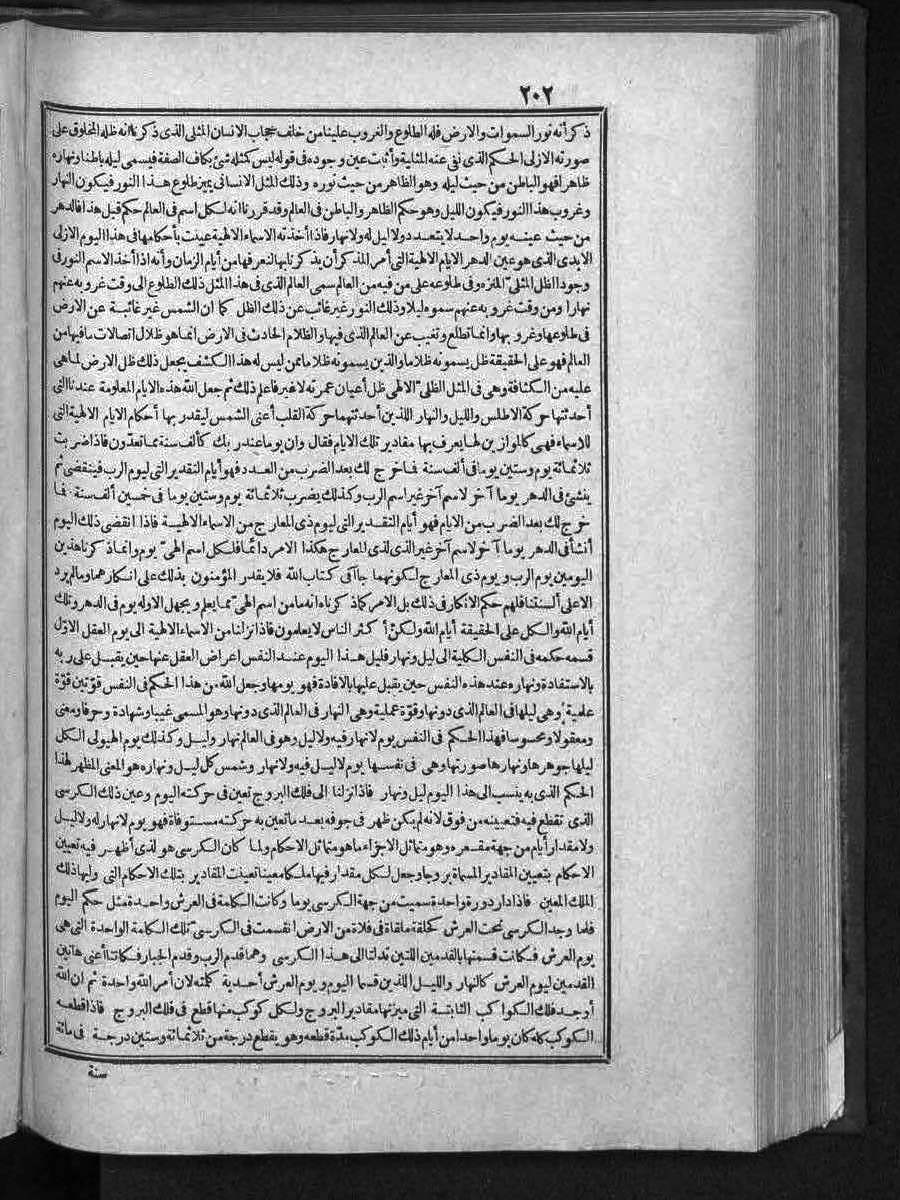 ٢٠٢
ذكر أنه نور السموات والارض فله الطلوع والغروب علينا من خلف حجاب الانسان المثلى الذى ذكرنا انه ظله المخلوق على
صورته الازلى الحكم الذى نفى عنه المثلية وأثبت عين وجوده فى قوله ليس كمثله شئ بكاف الصفة فيسمى ليله باطنا ونهاره
ظاهرا فهو الباطن من حيث ليله وهو الظاهر من حيث نوره وذلك المثل الانسانى يميز طلوع هذا النور فيكون النهار
وغروب هذا النور فيكون الليل وهو حكم الظاهر والباطن فى العالم وقد قررنا انه لكل اسم فى العالم حكم قبل هذا فالدهر
من حيث عينه يوم واحد لا يتعدد ولا ليل له ولا نهار فاذا أخذته الاسماء الالهية عينت بأحكامها فى هذا اليوم الازلى
الابدى الذى هو عين الدهر الايام الالهية التى أمر المذكر أن يذكرنا بها لنعرفها من أيام الزمان وأنه اذا أخذ الاسم النور فى
وجود الظل المثلى المنزه وفى طلوعه على من فيه من العالم سمى العالم الذى فى هذا المثل ذلك الطلوع الى وقت غروبه عنهم
نهارا ومن وقت غروبه عنهم سموه ليلا وذلك النور غير غائب عن ذلك الظل كما ان الشمس غير غائبة عن الارض
فى طلوعها وغروبها وانما تطلع وتغيب عن العالم الذى فيها والظلام الحادث فى الارض انما هو ظلال اتصالات ما فيها من
العالم فهو على الحقيقة ظل يسمونه ظلاما والذين يسمونه ظلاما ممن ليس له هذا الكشف يجعل ذلك ظل الارض لما هى
عليه من الكثافة وهى فى المثل الظلى الالهى ظل أعيان عمرته لا غير فاعلم ذلك ثم جعل الله هذه الايام المعلومة عندنا التى
أحدثتها حركة الاطلس والليل والنهار اللذين أحدثتهما حركة القلب أعنى الشمس ليقدر بها أحكام الايام الالهية التى
للاسماء فهى كالموازين لها يعرف بها مقادير تلك الايام فقال وان يوما عند ربك كألف سنة مما تعدّون فاذا ضربت
ثلاثمائة يوم وستين يوما فى ألف سنة فما خرج لك بعد الضرب من العدد فهو أيام التقدير التى ليوم الرب فينقضى ثم
ينشئ فى الدهر يوما آخر لاسم آخر غير اسم الرب وكذلك يضرب ثلاثمائة يوم وستين يوما فى خمسين ألف سنة فما
خرج لك بعد الضرب من الايام فهو أيام التقدير التى ليوم ذى المعارج من الاسماء الالهية فاذا انقضى ذلك اليوم
أنشأ فى الدهر يوما آخر لاسم آخر غير الذى لذى المعارج هكذا الامر دائما فلكل اسم الهىّ يوم وانما ذكرنا هذين
اليومين يوم الرب ويوم ذى المعارج لكونهما جاآ فى كتاب الله فلا يقدر المؤمنون بذلك على انكارهما وما لم يرد
الاعلى ألسنتنا فلهم حكم الانكار فى ذلك بل الامر كما ذكرناه انه ما من اسم الهىّ مما يعلم ويجهل الا وله يوم فى الدهر وتلك
أيام الله والكل على الحقيقة أيام الله ولكنّ أكثر الناس لا يعلمون فاذا نزلنا من الاسماء الالهية الى يوم العقل الاوّل
قسمه حكمه فى النفس الكلية الى ليل ونهار فليل هذا اليوم عند النفس اعراض العقل عنها حين يقبل على ربه
بالاستفادة ونهاره عند هذه النفس حين يقبل عليها بالافادة فهو يومها وجعل الله من هذا الحكم فى النفس قوّتين قوّة
علمية وهى ليلها فى العالم الذى دونها وقوّة عملية وهى النهار فى العالم الذى دونها وهو المسمى غيبا وشهادة وحرفا ومعنى
ومعقولا ومحسوسا فهذا الحكم فى النفس يوم لا نهار فيه ولا ليل وهو فى العالم نهار وليل وكذلك يوم الهيولى الكل
ليلها جوهرها ونهارها صورتها وهى فى نفسها يوم لا ليل فيه ولا نهار وشمس كل ليل ونهاره هو المعنى المظهر لهذا
الحكم الذى به ينسب الى هذا اليوم ليل ونهار فاذا نزلنا الى فلك البروج تعين فى حركته اليوم وعين ذلك الكرسى
الذى تقطع فيه فتعيينه من فوق لانه لم يكن ظهر فى جوفه بعد ما تعين به حركته مستوفاة فهو يوم لا نهار له ولا ليل
ولا مقدار أيام من جهة مقعره وهو متماثل الاجزاء ما هو متماثل الاحكام ولما كان الكرسى هو الذى أظهر فيه تعيين
الاحكام بتعيين المقادير المسماة بروجا وجعل لكل مقدار فيها ملكا معينا تعينت المقادير بتلك الاحكام التى وليها ذلك
الملك المعين فاذا دار دورة واحدة سميت من جهة الكرسى يوما وكانت الكلمة فى العرش واحدة مثل حكم اليوم
فلما وجد الكرسى تحت العرش كحلقة ملقاة فى فلاة من الارض انقسمت فى الكرسى تلك الكلمة الواحدة التى هى
يوم العرش فكانت قسمتها بالقدمين اللتين تدلتا الى هذا الكرسى وهما قدم الرب وقدم الجبار فكانتا أعنى هاتين
القدمين ليوم العرش كالنهار والليل اللذين قسما اليوم ويوم العرش أحدية كلمته لان أمر الله واحدة ثم ان الله
أوجد فلك الكواكب الثابتة التى ميزتها مقادير البروج ولكل كوكب منها قطع فى فلك البروج فاذا قطعه
الكوكب كله كان يوما واحدا من أيام ذلك الكوكب مدّة قطعه وهو يقطع درجة من ثلاثمائة وستين درجة فى مائة
سنة